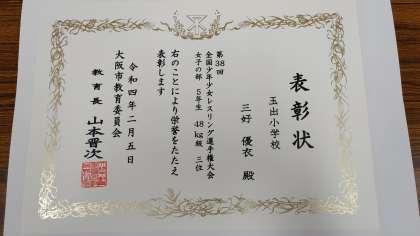 表彰状
玉出小学校
三好 優衣 殿
第38回
全国少年少女レスリング選手権大会
女子の部 5年生 48kg級 三位
右のことにより栄誉をたたえ
表彰します
令和四年二月五日
大阪市教育委員会
教育長 山本晋次